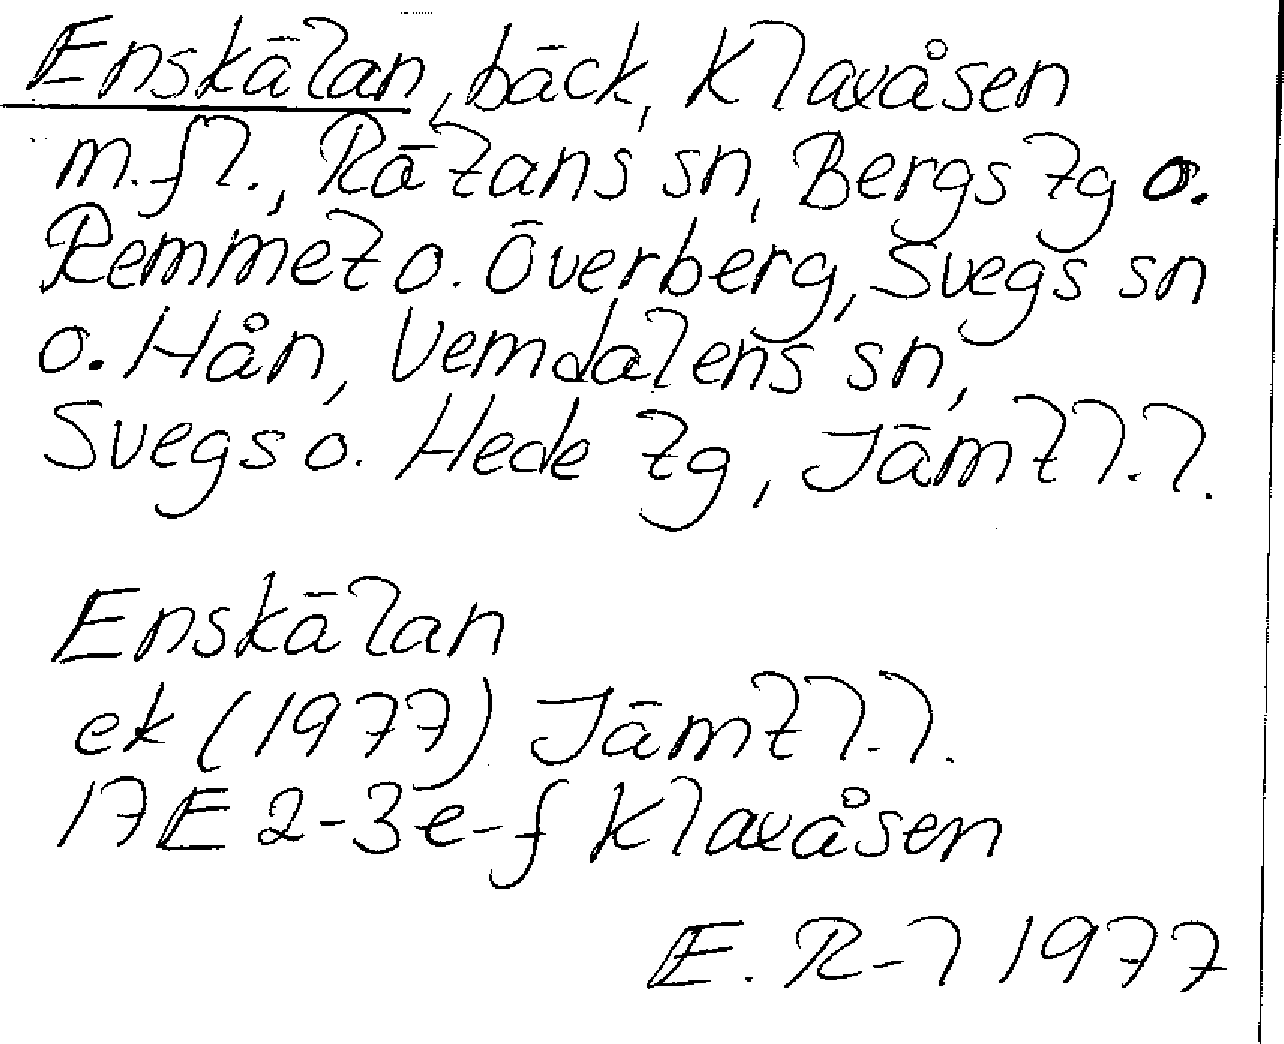 Enskälan, bäck, Klaxåsen
m.fl., Rätans sn, Bergs tg o.
Remmet o. Överberg, Svegs sn
o. Hån, Vemdalens sn,
Svegs o. Hede tg, Jämtl.l.
Enskälan
ek (1977) Jämtl.l.
17E 2-3e-f Klaxåsen
E. R-l 1977